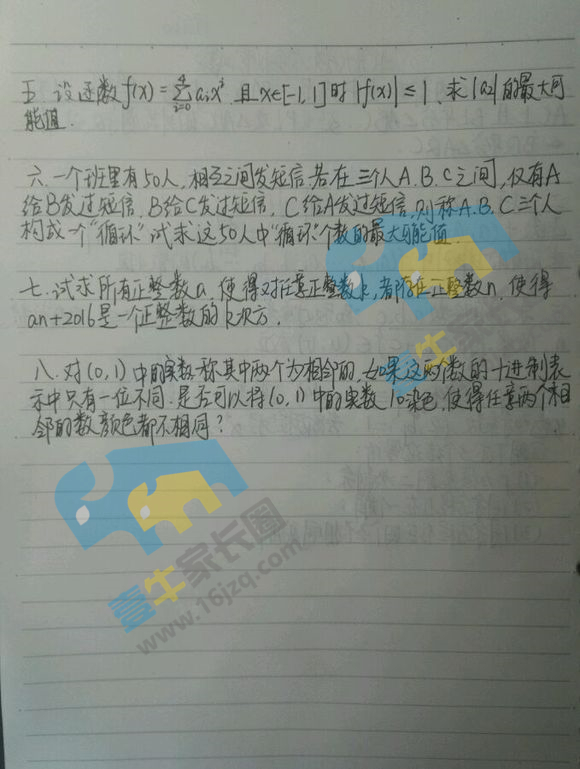 五. 设函数 f(x) = ∑_{i=0}^{4} a_i x^i 且 x∈[-1, 1] 时 |f(x)| ≤ 1, 求 |a_2| 的最大可
能值.
六. 一个班里有50人, 相互之间发短信. 若在三个人 A. B. C 之间, 仅有A
给B发过短信, B给C发过短信, C给A发过短信, 则称 A. B. C 三个人
构成一个"循环" 试求这50人中"循环"个数的最大可能值.
七. 试求所有正整数a, 使得对任意正整数k, 都存在正整数n, 使得
an+2016是一个正整数的k次方.
八. 对 (0, 1) 中的实数, 称其中两个为相邻的, 如果这两个数的十进制表
示中只有一位不同. 是否可以将 (0, 1) 中的实数10染色, 使得任意两个相
邻的数颜色都不相同?
壹牛家长圈
www.16jzq.com